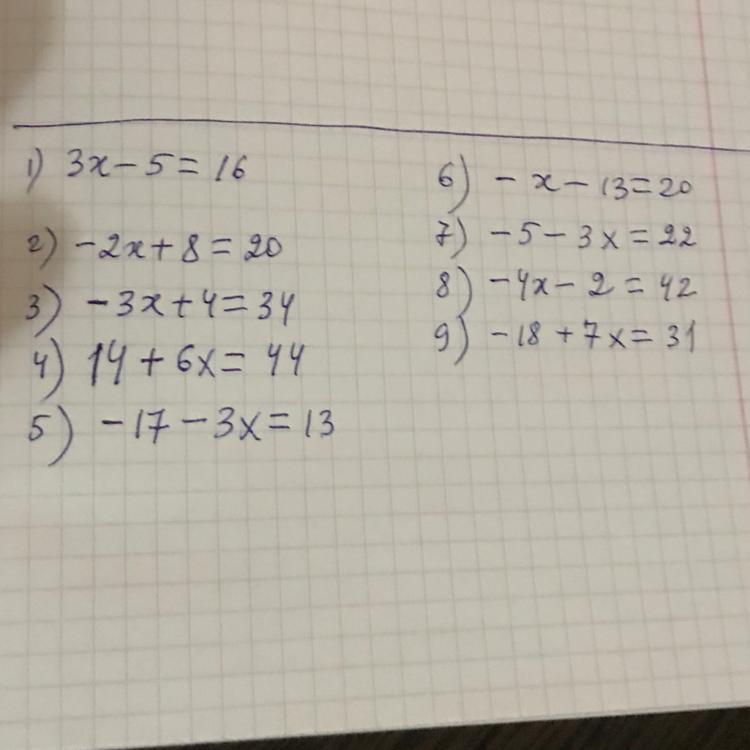 1) 3x-5=16
2) -2x+8=20
3) -3x+4=34
4) 14+6x=44
5) -17-3x=13
6) -x-13=20
7) -5-3x=22
8) -4x-2=42
9) -18+7x=31